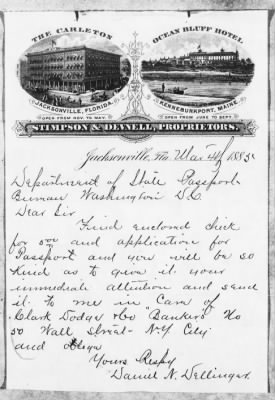 THE CARLETON
OCEAN BLUFF HOTEL
JACKSONVILLE, FLORIDA.
KENNEBUNKPORT, MAINE.
OPEN FROM NOV. TO MAY.
OPEN FROM JUNE TO SEPT.
STIMPSON & DEVNELL, PROPRIETORS.
Jacksonville, Fla. Mar 1885
Department of State Passport
Bureau Washington D.C
Dear Sir
Find enclosed check
for 5.00 and application for
Passport and you will be so
kind as to give it your
immediate attention and send
it to me in Care of
Clark Dodge & Co "Bankers" No
50 Wall Street N.Y City
and oblige
Yours Respy
Daniel N. Dellinger